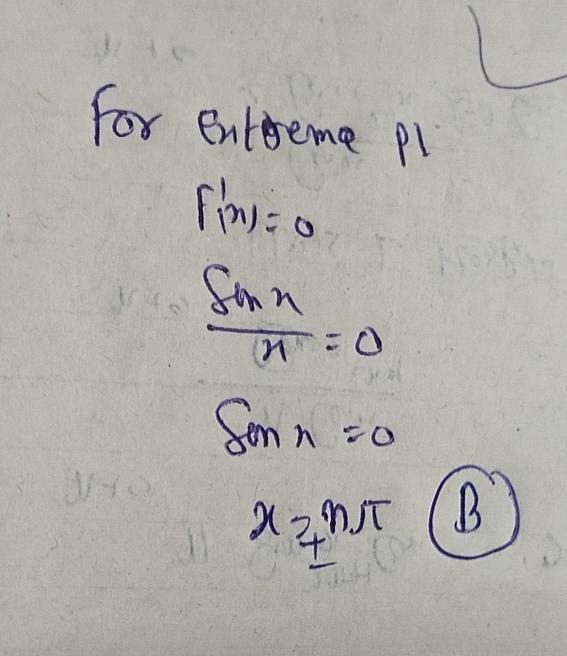 For extreme pt.
F'(x) = 0
Sin x
x = 0
Sin x = 0
x = ± nπ (B)